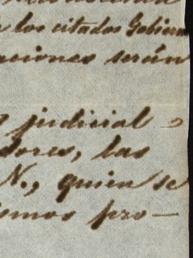 los citados Gobier
aciones serán
judicial
dores, las
N., quien se
ismos pro-